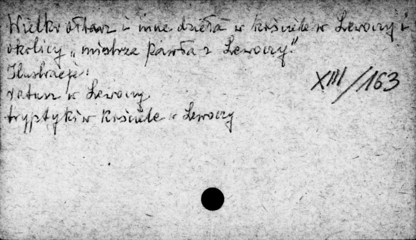 Wielki ołtarz i inne dzieła w kościele w Lewoczy i
okolicy „mistrza Pawła z Lewoczy"
Ilustracje:
ratusz w Lewoczy.
tryptyk w kościele w Lewoczy
XIII/163